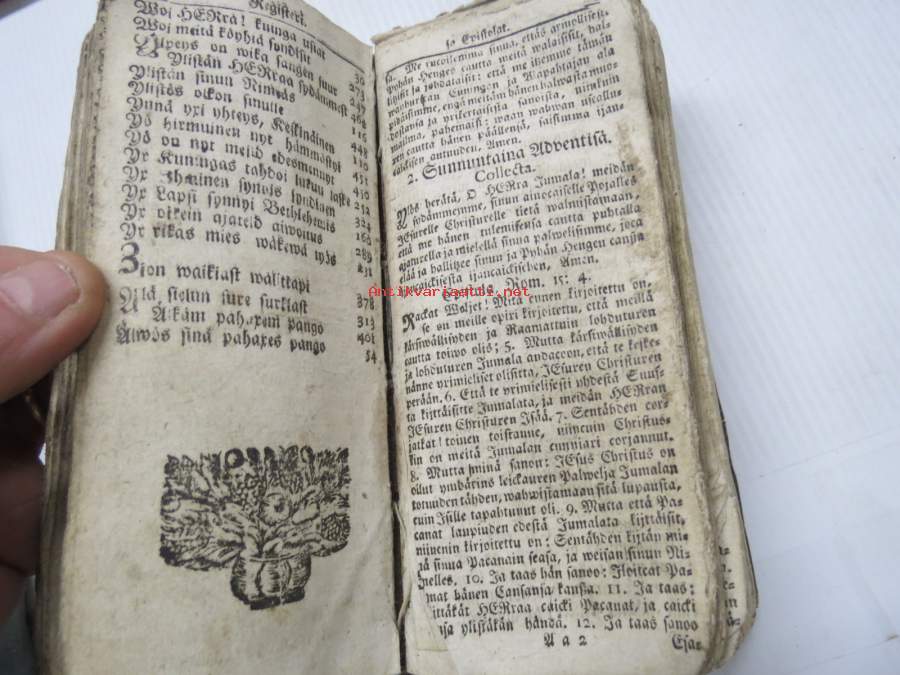 Registeri.
Woi HERra! kuinga usiat 36
Woi meitä köyhiä syndisit 273
Ylpeys on wika sangen suur 247
Ylistän HERraa sydämmest 464
Ylistän sinun Nimeäs 116
Ylistös olkon sinulle 448
Ynnä yxi yhteys, Keskinäinen 110
Yö hirmuinen nyt hämmästyt 451
Yö on nyt meild edesmennyt 450
Yx Kuningas tahdoi lukuu laske 212
Yx Ihminen synnis syndinen 324
Yx Lapsi synnyi Bethlehemis 169
Yx oikein ajateld aiwonus 289
Yx rikas mies wäkewä työs 231
Zion waikiast walittapi 378
Älä sielun sure surklast 313
Älkäm pahaxem pango 401
Älwös sinä pahaxes pango 54
ja Epistolat.
sa. Me rucoilemma sinua, ettäs armollisesti
Pyhän Henges cautta meitä walaisisit, hal-
lidsisit ja johdataisit: että me itzemme tämän
wanhurscan Cuningan ja Wapahtajan ala
pääisimme, engä meitän hänen halwasta muo-
dostansa ja ylikerjaisista sanoista, niincuin
mailma, pahenaisi: waan wahwan uscallu-
xen cautta hänen päällensä, saisimma ijan-
caickisen autuuden, Amen.
2. Sunnuntaina Adventisä.
Collecta.
Ylös herätä, O HERra Jumala! meidän
sydämmemme, sinun ainocaiselle Pojalles
JEsuxelle Christuxelle tietä walmistamaan,
että me hänen tulemisensa cautta puhtalla
ajatuxella ja mielellä sinua palwelisimme, joca
elää ja hallitzee sinun ja Pyhän Hengen cansa
ijancaickisesta ijancaickiseen, Amen.
Epist. Rom. 15: 4.
Rackat Weljet! Mitä ennen kirjoitettu on,
se on meille opixi kirjoitettu, että meillä
kärsiwällisyden ja Raamattuin lohdutuxen
cautta toiwo olis; 5. Mutta kärsiwällisyden
ja lohdutuxen Jumala andacoon, että te keske-
nänne yximieliset olisitta, JEsuxen Christuxen
perään. 6. Että te yximielisesti yhdestä Suus-
ta kijttäisitte Jumalata, ja meidän HERran
JEsuxen Christuxen Isää. 7. Sentähden cor-
jatkat toinen toistanne, niincuin Christus-
kin on meitä Jumalan cunniaxi corjannut.
8. Mutta minä sanon: JEsus Christus on
ollut ymbärins leickauxen Palwelja Jumalan
totuuden tähden, wahwistamaan sitä lupausta,
cuin Isille tapahtunut oli. 9. Mutta että Pa-
canat laupiuden edestä Jumalata kijttäisit,
niincuin kirjoitettu on: Sentähden kijtän mi-
nä sinua Pacanain seasa, ja weisan sinun Ni-
melles. 10. Ja taas hän sanoo: Iloitcat Pa-
canat hänen Cansansa kansa. 11. Ja taas:
Kijttäkät HERraa caicki Pacanat, ja caicki
Cansa ylistäkän händä. 12. Ja taas sanoo
A a 2 Esa-
Antikvariaatti.net